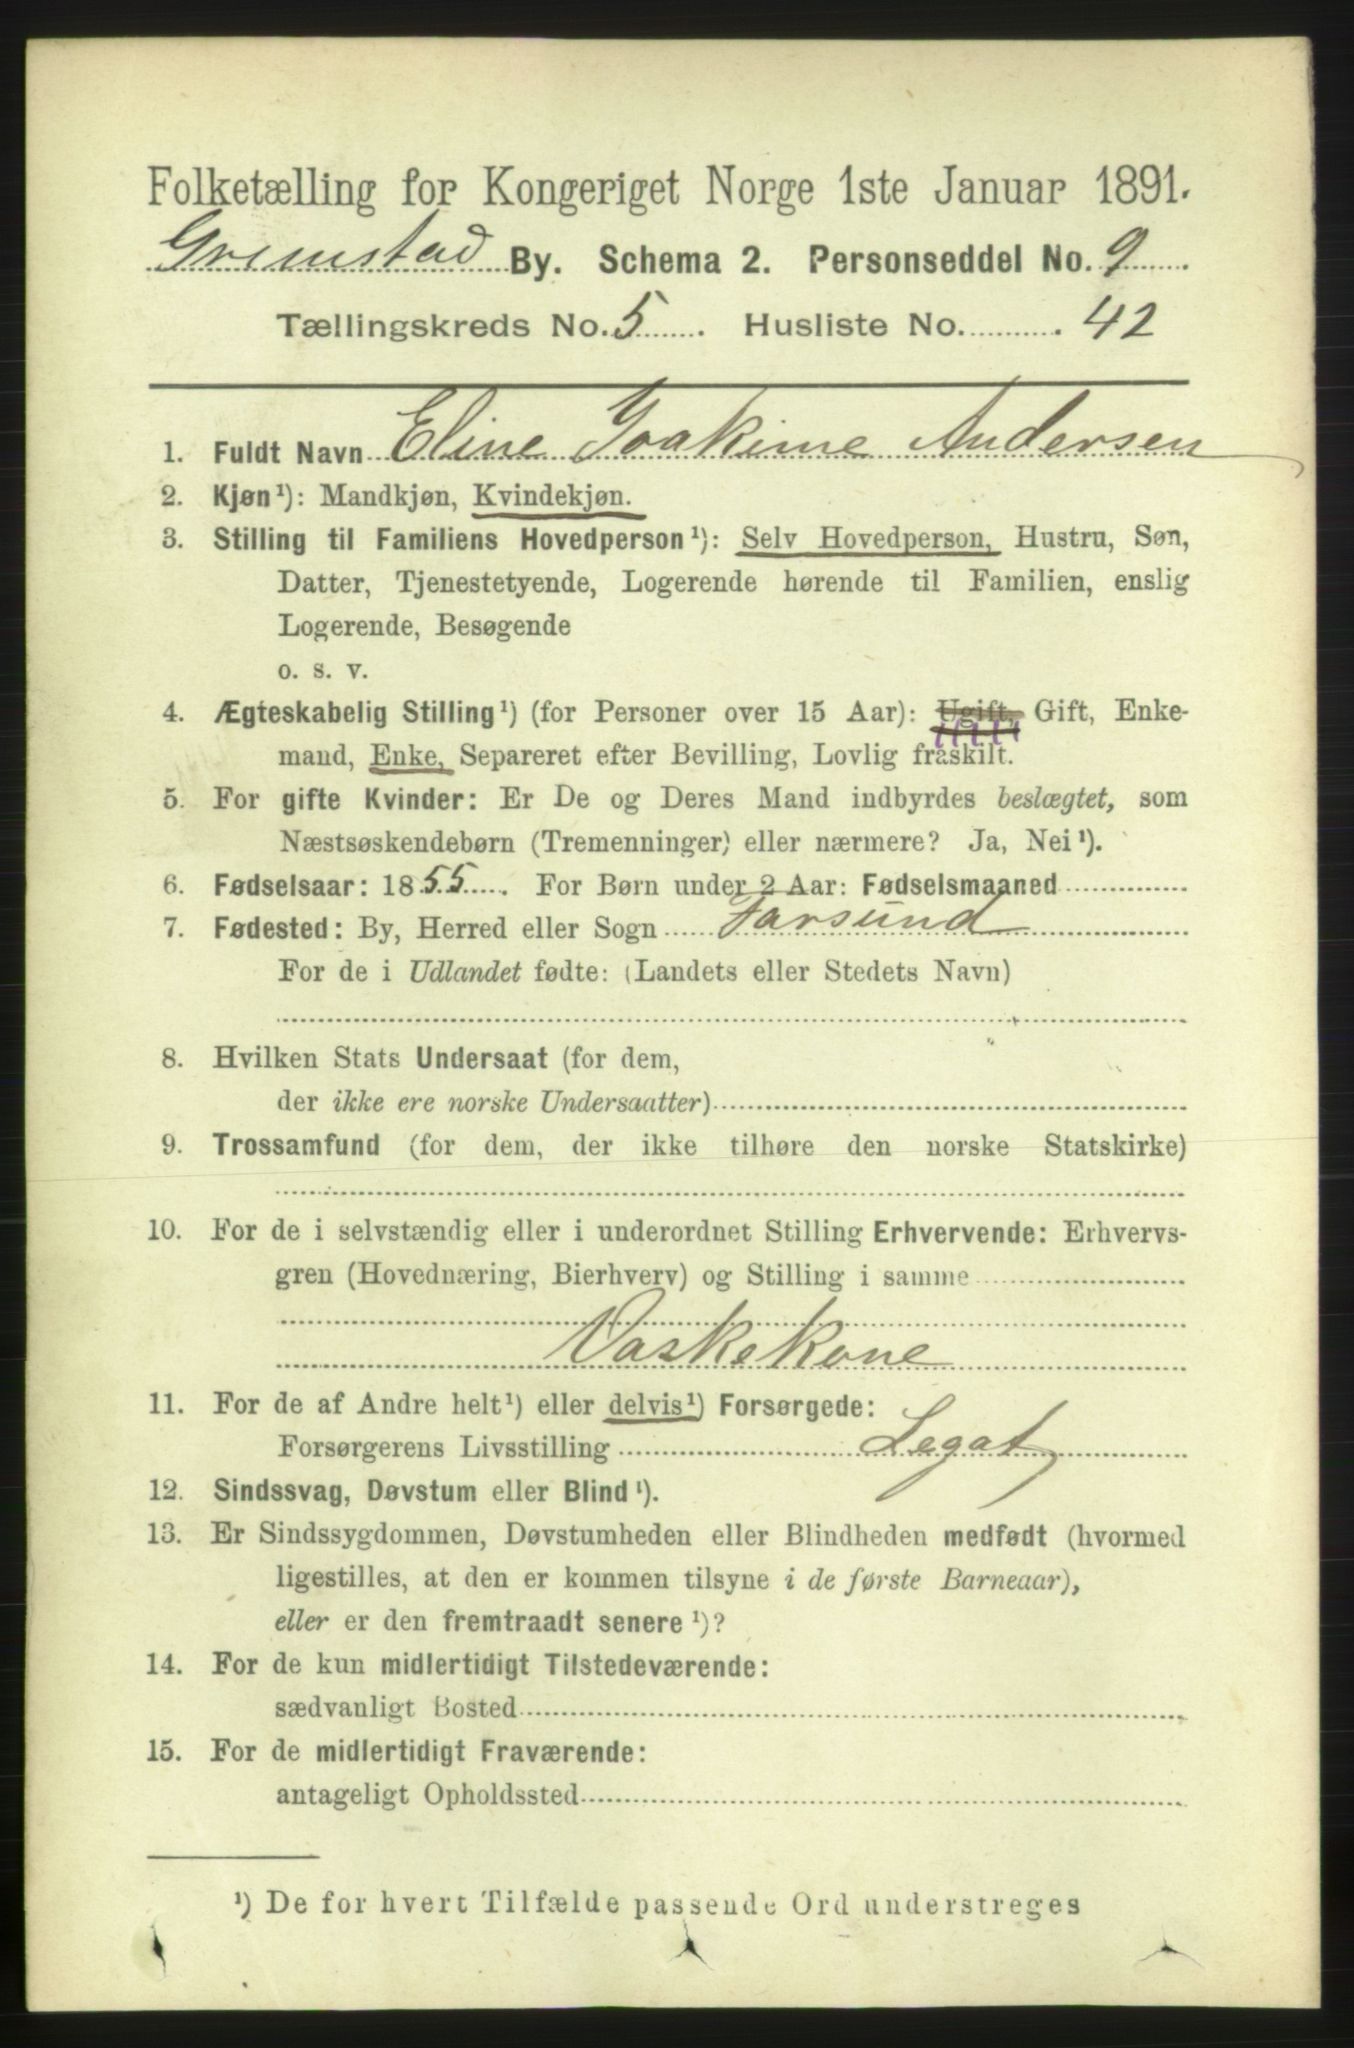 Folketælling for Kongeriget Norge 1ste Januar 1891.
Grimstad By. Schema 2. Personseddel No. 9
Tællingskreds No. 5. Husliste No. 42
1. Fuldt Navn Eline Joakime Andersen
2. Kjøn¹): Mandkjøn, Kvindekjøn.
3. Stilling til Familiens Hovedperson¹): Selv Hovedperson, Hustru, Søn,
Datter, Tjenestetyende, Logerende hørende til Familien, enslig
Logerende, Besøgende
o. s. v.
4. Ægteskabelig Stilling¹) (for Personer over 15 Aar): Ugift, Gift, Enke-
mand, Enke, Separeret efter Bevilling, Lovlig fraskilt.
5. For gifte Kvinder: Er De og Deres Mand indbyrdes beslægtet, som
Næstsøskendebørn (Tremenninger) eller nærmere? Ja, Nei¹).
6. Fødselsaar: 1855. For Børn under 2 Aar: Fødselsmaaned
7. Fødested: By, Herred eller Sogn Farsund
For de i Udlandet fødte: (Landets eller Stedets Navn)
8. Hvilken Stats Undersaat (for dem,
der ikke ere norske Undersaatter)
9. Trossamfund (for dem, der ikke tilhøre den norske Statskirke)
10. For de i selvstændig eller i underordnet Stilling Erhvervende: Erhvervs-
gren (Hovednæring, Bierhverv) og Stilling i samme
Vaskekone
11. For de af Andre helt¹) eller delvis¹) Forsørgede:
Forsørgerens Livsstilling Legat
12. Sindssvag, Døvstum eller Blind¹).
13. Er Sindssygdommen, Døvstumheden eller Blindheden medfødt (hvormed
ligestilles, at den er kommen tilsyne i de første Barneaar),
eller er den fremtraadt senere¹)?
14. For de kun midlertidigt Tilstedeværende:
sædvanligt Bosted
15. For de midlertidigt Fraværende:
antageligt Opholdssted
¹) De for hvert Tilfælde passende Ord understreges